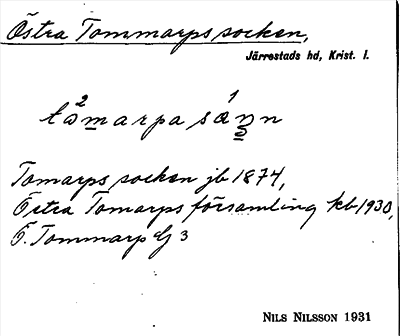 Östra Tommarps socken,
Järrestads hd, Krist. l.
tomarpa sann
Tomarps socken jb 1874,
Östra Tomarps församling kb 1930,
Ö. Tommarp GJ 3
NILS NILSSON 1931